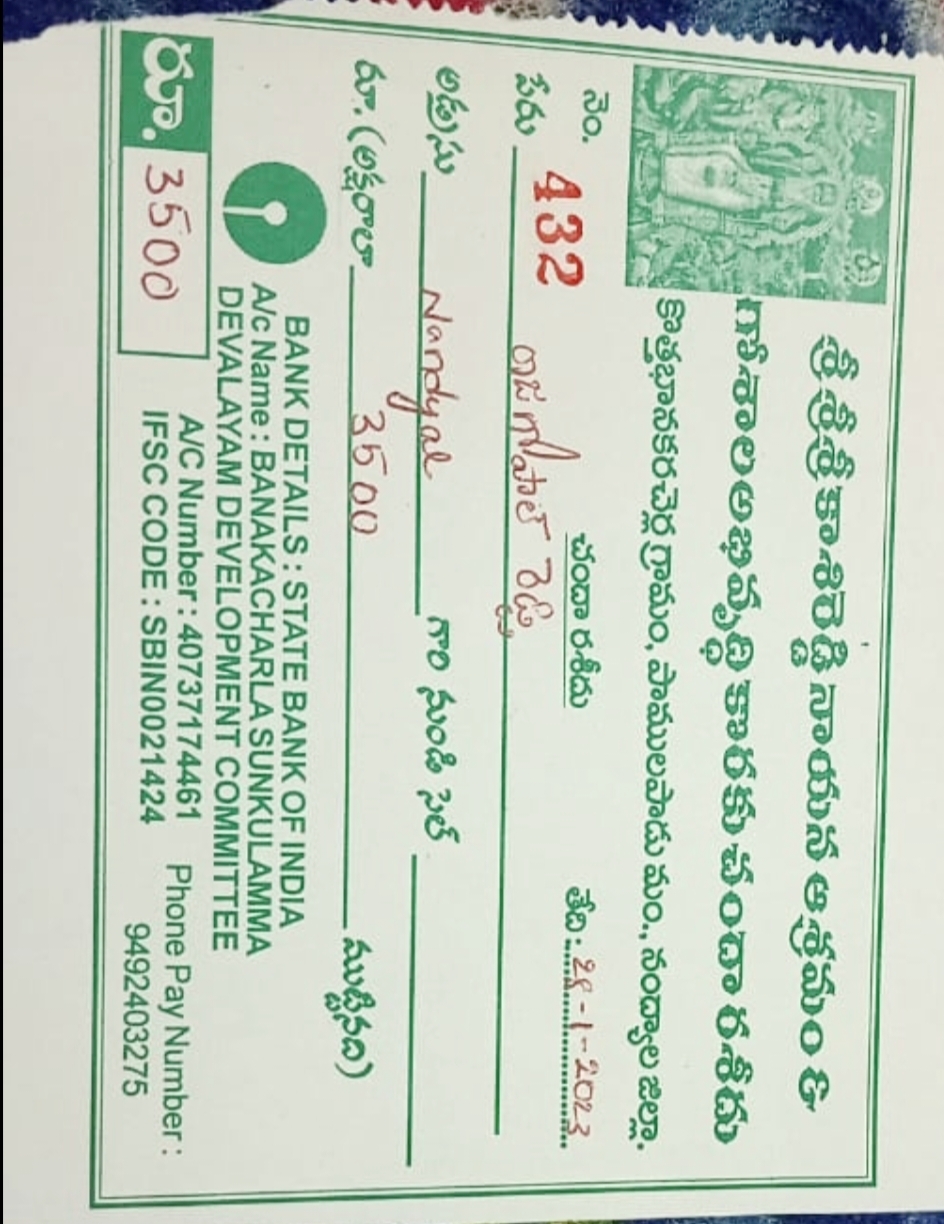 శ్రీశ్రీశ్రీ కాశిరెడ్డి నాయన ఆశ్రమం &
గోశాల అభివృద్ధి కొరకు చందా రశీదు
కొత్తభానకచెర్ల గ్రామం, పాములపాడు మం., నంద్యాల జిల్లా.
నెం. 432 చందా రశీదు తేది: 28-1-2023
పేరు రాజగోపాల్ రెడ్డి
అడ్రసు Nandyal గారి నుండి సెల్
రూ. (అక్షరాలా 3500 ముట్టినది)
BANK DETAILS : STATE BANK OF INDIA
A/c Name : BANAKACHARLA SUNKULAMMA
DEVALAYAM DEVELOPMENT COMMITTEE
A/C Number : 40737174461 Phone Pay Number :
రూ. 3500 IFSC CODE : SBIN0021424 9492403275